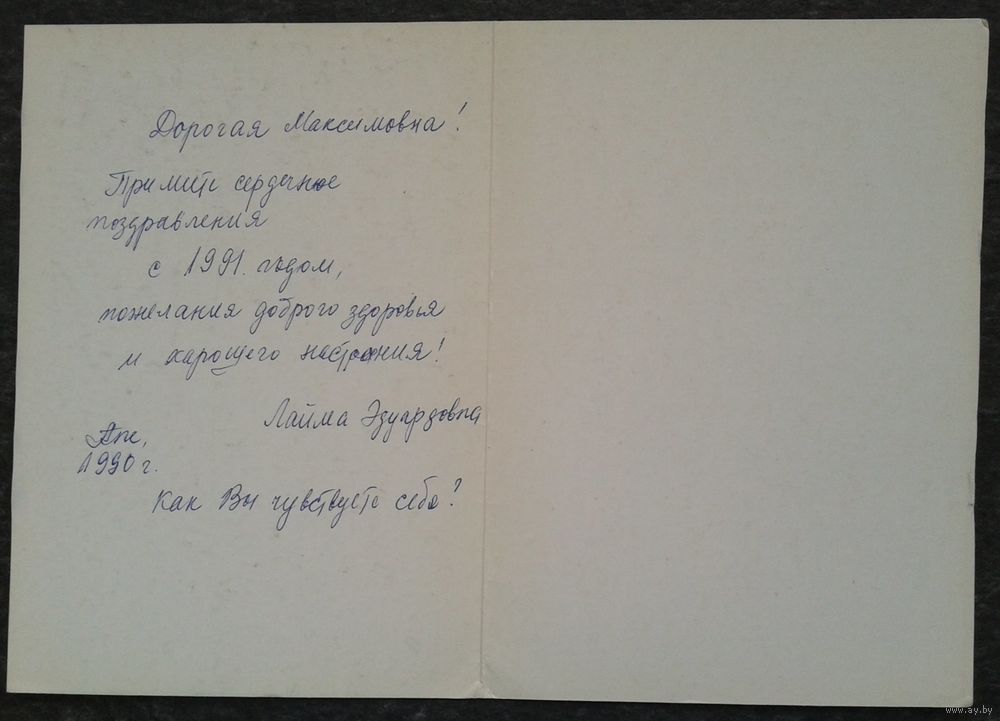 Дорогая Максимовна!
Примите сердечное
поздравления
с 1991. годом,
пожелания доброго здоровья
и харошего настроения!
Лайма Эдуардовна
Апе,
1990 г.
Как Вы чувствуете себе?
www.ay.by